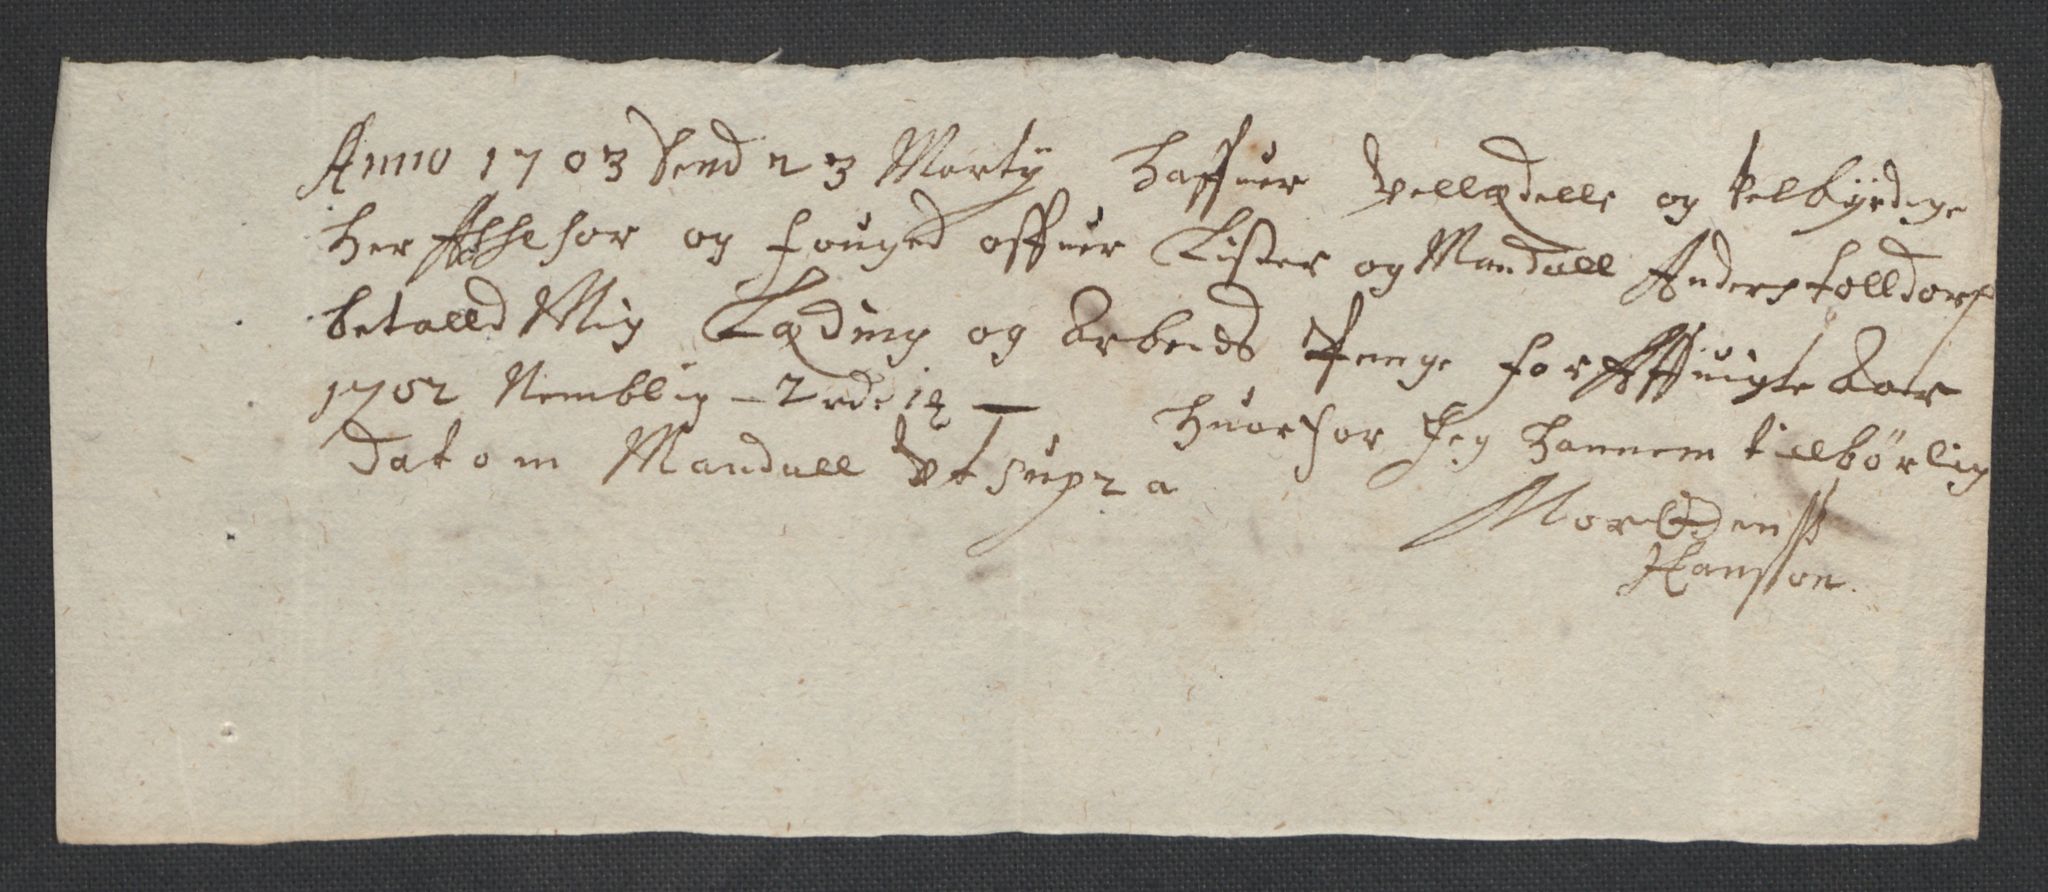 Anno 1703 Dend 23 Marty Haffuer Vellædelle og velbyrdige
Her Assesor og fouged offuer Lister og Mandall Anders tolldorp
betalld Mig Læding og Arbeids Penge for Affuigte Aar
1702 Nemblig - 2 rdr 1 - Huorfor Jeg hannem tillbørlig
Datom Mandall Vt supra
Hansson